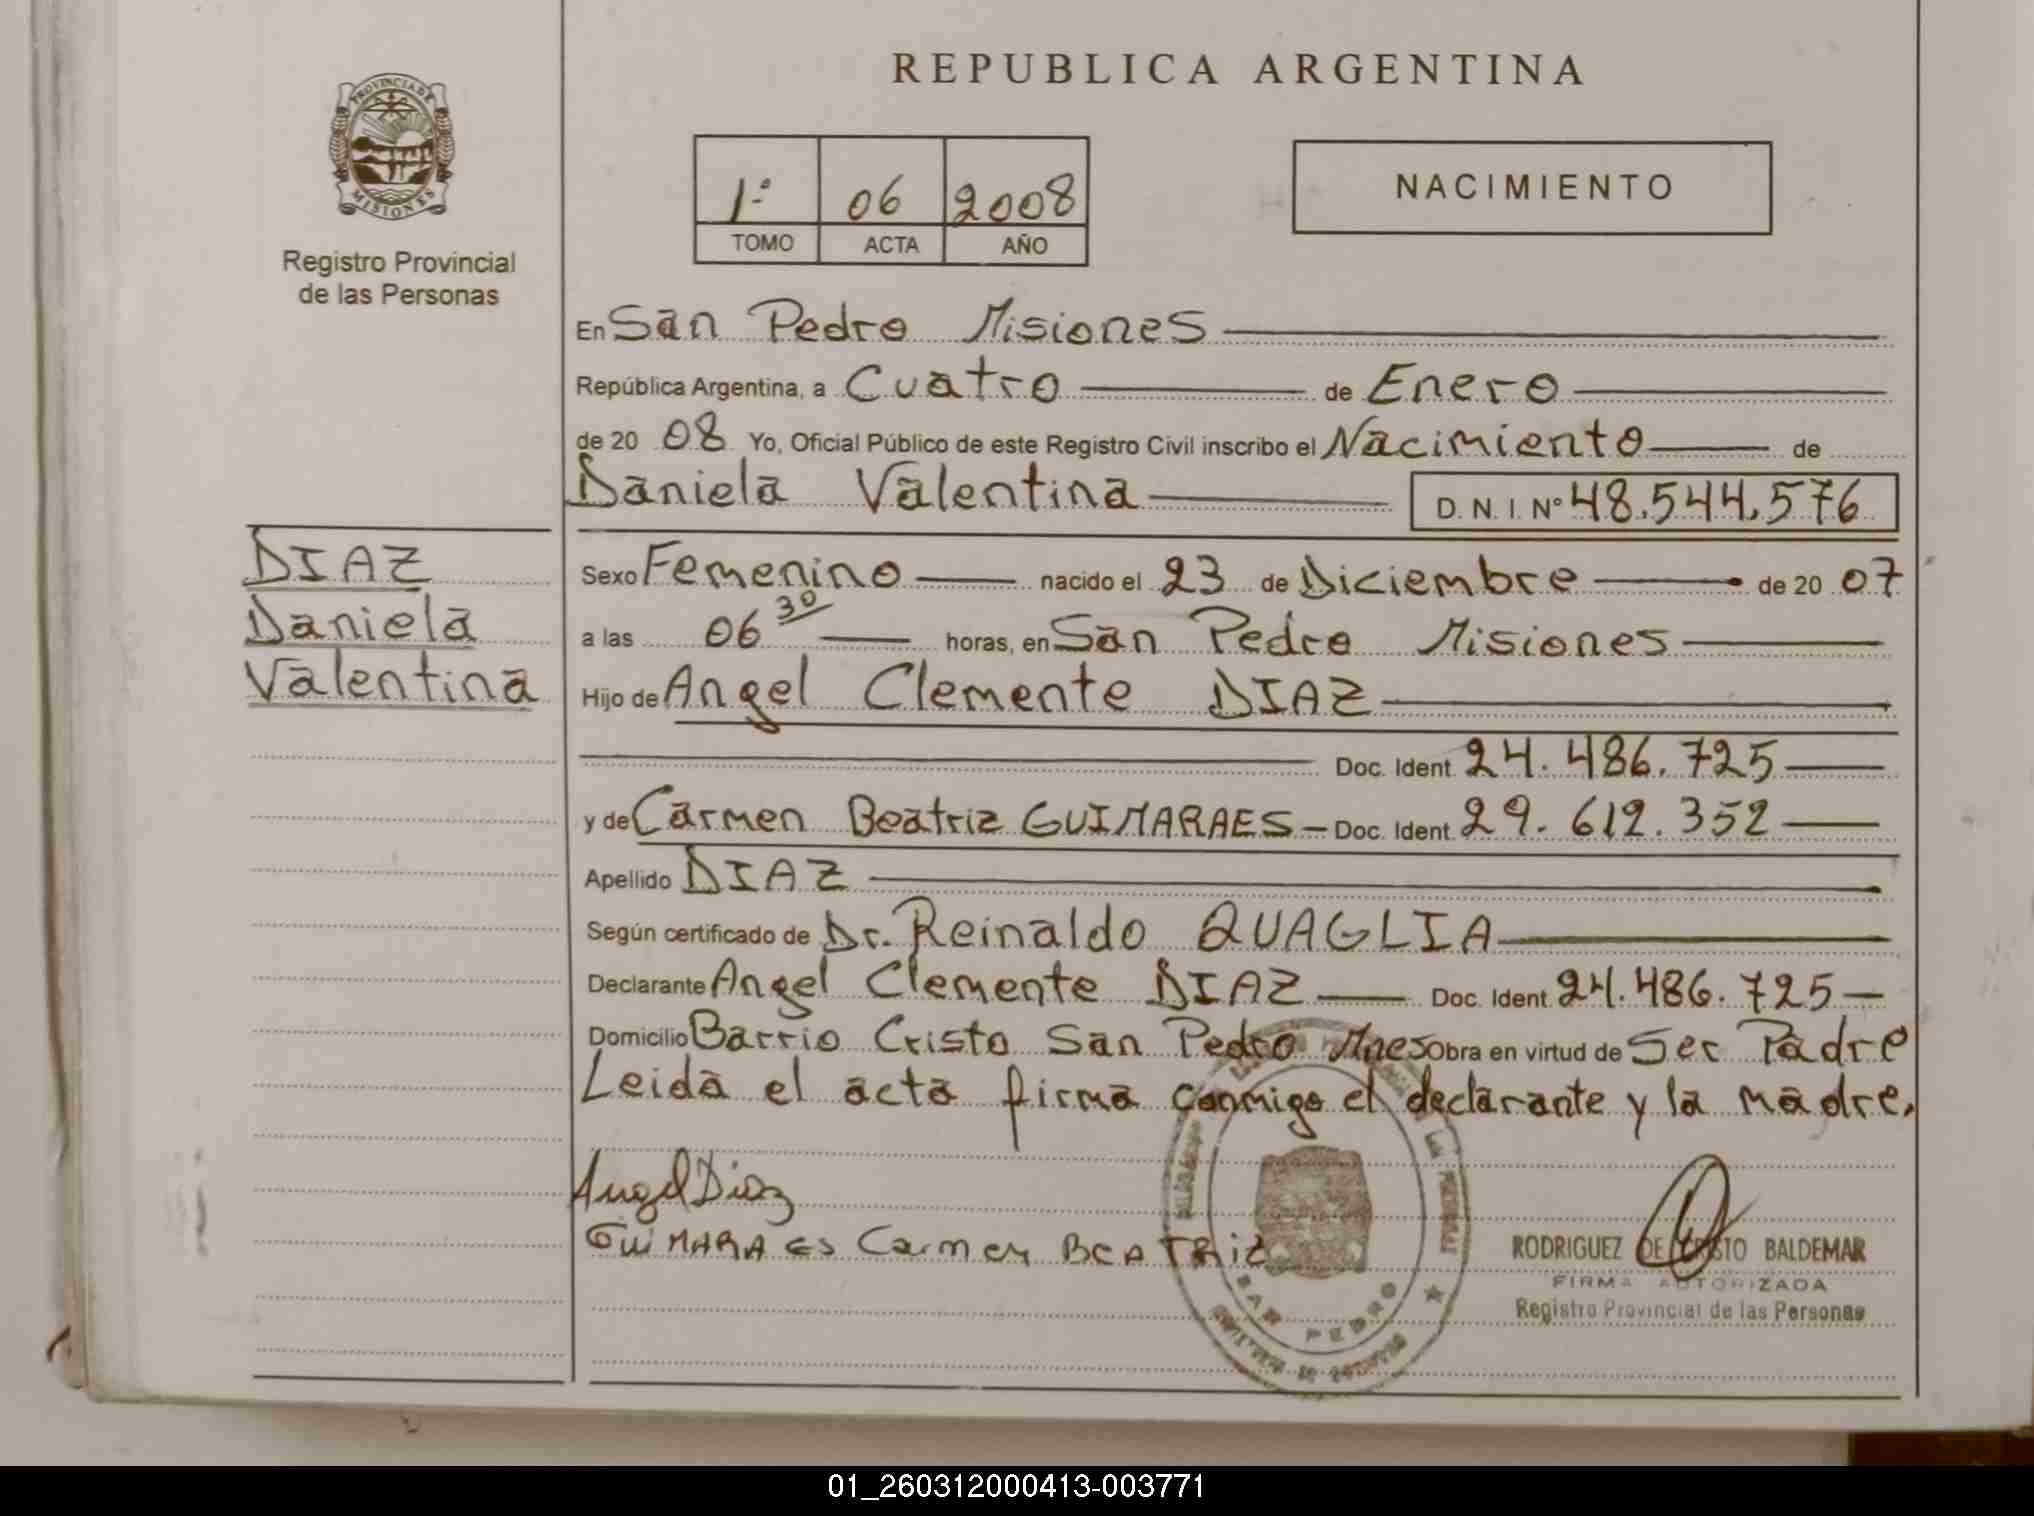 REPUBLICA ARGENTINA
PROVINCIA DE
MISIONES
Registro Provincial
de las Personas
1º 06 2008
TOMO ACTA AÑO
NACIMIENTO
En San Pedro Misiones
República Argentina, a Cuatro de Enero
de 20 08 Yo, Oficial Público de este Registro Civil inscribo el Nacimiento de
Daniela Valentina D. N. I. Nº 48.544.576
DIAZ
Daniela
Valentina
Sexo Femenino nacido el 23 de Diciembre de 20 07
a las 06 30 horas, en San Pedro Misiones
Hijo de Angel Clemente DIAZ
Doc. Ident. 24.486.725
y de Carmen Beatriz GUIMARAES - Doc. Ident. 29.612.352
Apellido DIAZ
Según certificado de Dr. Reinaldo QUAGLIA
Declarante Angel Clemente DIAZ Doc. Ident. 24.486.725
Domicilio Barrio Cristo San Pedro Mnes Obra en virtud de Ser Padre
Leida el acta firma conmigo el declarante y la madre.
Angel Diaz
GUIMARAES Carmen BEATRIZ
SAN PEDRO
RODRIGUEZ DE CRISTO BALDEMAR
FIRMA AUTORIZADA
Registro Provincial de las Personas
01_260312000413-003771